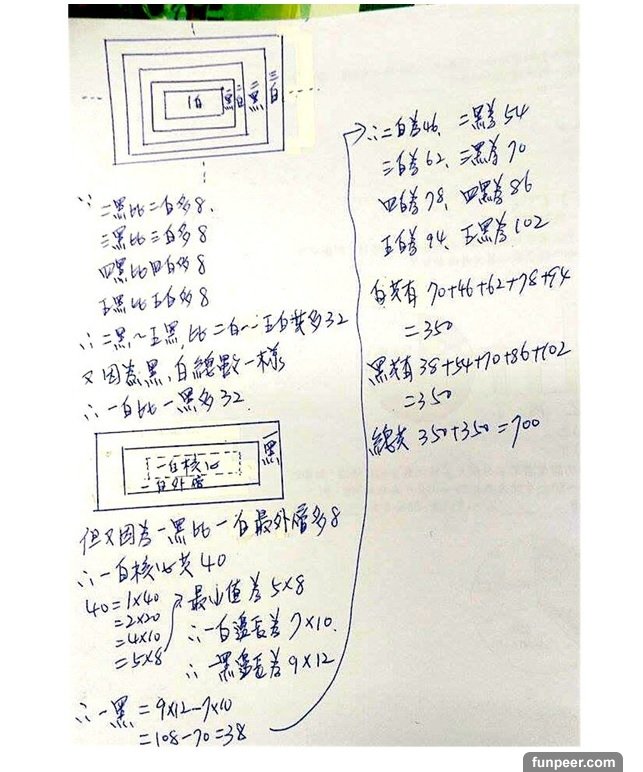 1白 一黑 二白 二黑 三白
∵二黑比二白多8、
三黑比三白多8
四黑比四白多8
五黑比五白多8
∴二黑~五黑,比二白~五白共多32
又因為黑、白總數一樣
∴一白比一黑多32
一黑
一白核心
一白外層
但又因為一黑比一白最外層多8
∴一白核心共40
40=1×40
=2×20
=4×10
=5×8
最小值為5×8
∴一白邊長為7×10
∴一黑邊長為9×12
∴一黑=9×12-7×10
=108-70=38
∴二白為46、二黑為54
三白為62、三黑為70
四白為78、四黑為86
五白為94、五黑為102
白共有 70+46+62+78+94
=350
黑共有 38+54+70+86+102
=350
總共 350+350=700
funpeer.com